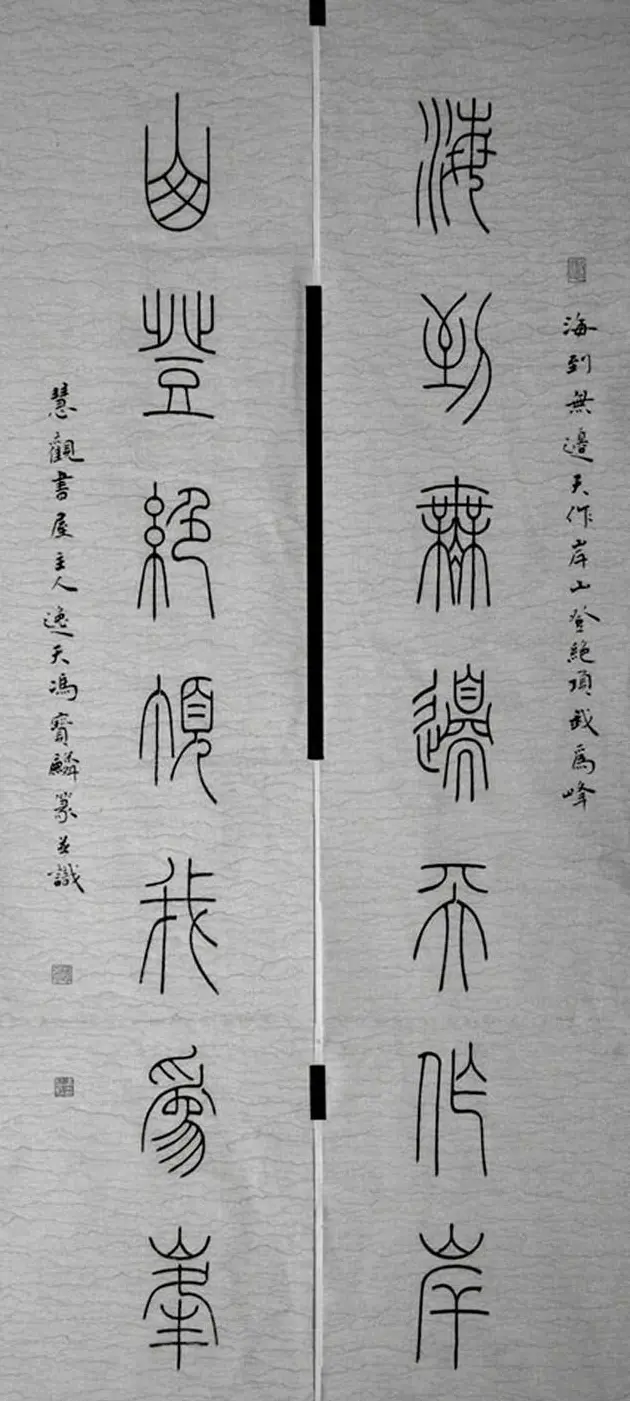 海到無邊天作岸
海到無邊天作岸山登絕頂我為峰
山登絕頂我為峯
慧觀書屋主人逸天馮寶麟篆並識